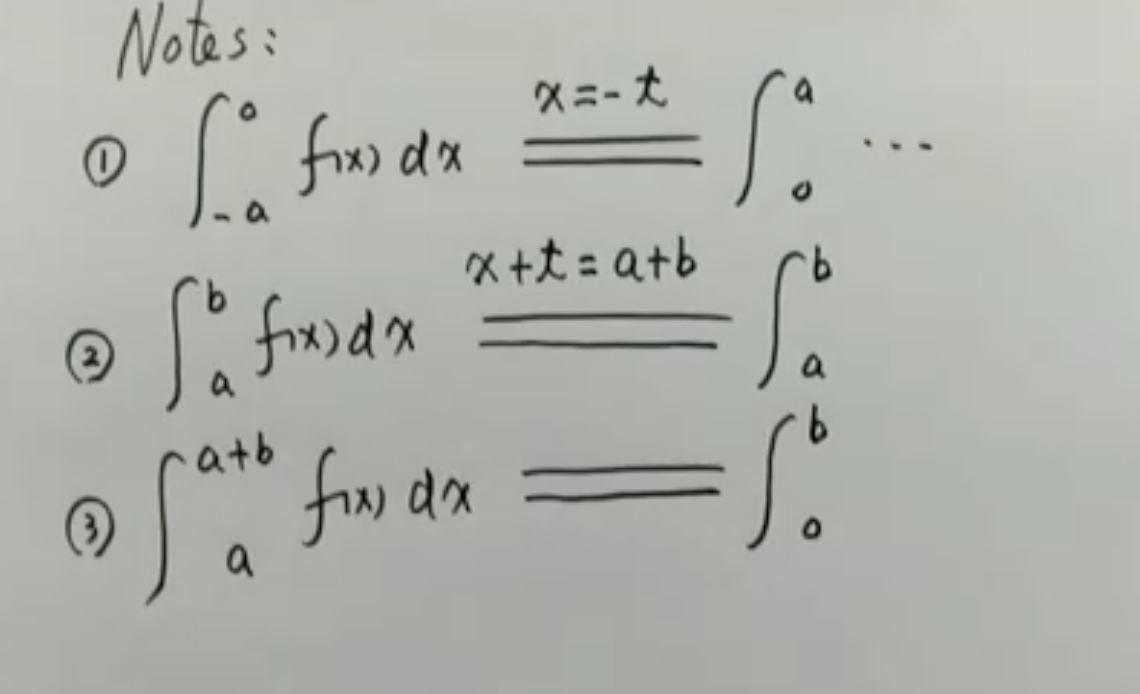 Notes:
① ∫_{-a}^{0} f(x) dx \xlongequal{x=-t} ∫_{0}^{a} ...
② ∫_{a}^{b} f(x) dx \xlongequal{x+t=a+b} ∫_{a}^{b}
③ ∫_{a}^{a+b} f(x) dx ═══ ∫_{0}^{b}